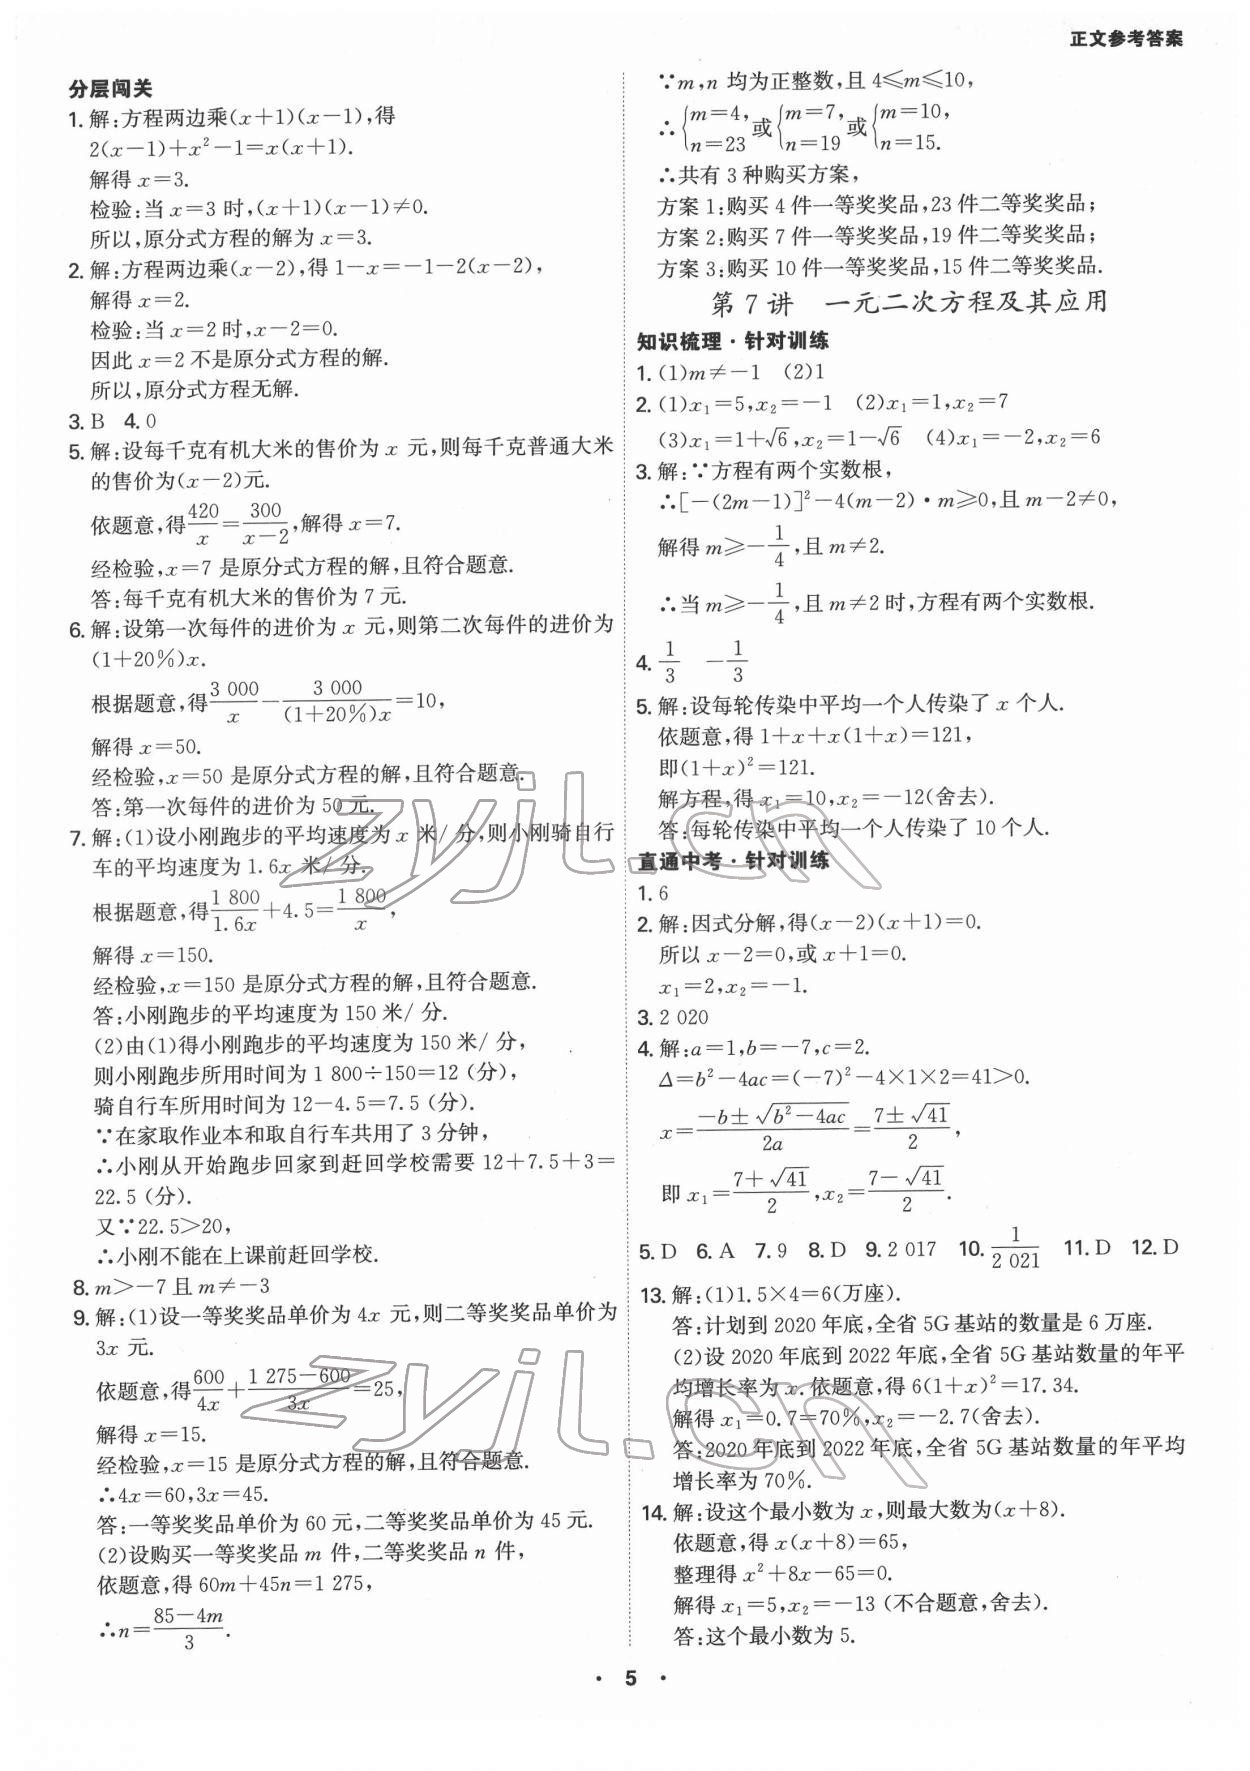 正文参考答案
分层闯关
1. 解:方程两边乘(x+1)(x-1),得
2(x-1)+x²-1=x(x+1).
解得 x=3.
检验:当 x=3 时,(x+1)(x-1)≠0.
所以,原分式方程的解为 x=3.
2. 解:方程两边乘(x-2),得 1-x=-1-2(x-2),
解得 x=2.
检验:当 x=2 时,x-2=0.
因此 x=2 不是原分式方程的解.
所以,原分式方程无解.
3. B 4. 0
5. 解:设每千克有机大米的售价为 x 元,则每千克普通大米
的售价为(x-2)元.
依题意,得420/x=300/(x-2),解得 x=7.
经检验,x=7 是原分式方程的解,且符合题意.
答:每千克有机大米的售价为 7 元.
6. 解:设第一次每件的进价为 x 元,则第二次每件的进价为
(1+20%)x.
根据题意,得3 000/x-3 000/((1+20%)x)=10,
解得 x=50.
经检验,x=50 是原分式方程的解,且符合题意.
答:第一次每件的进价为 50 元.
7. 解:(1)设小刚跑步的平均速度为 x 米/分,则小刚骑自行
车的平均速度为 1.6x 米/分.
根据题意,得1 800/1.6x+4.5=1 800/x,
解得 x=150.
经检验,x=150 是原分式方程的解,且符合题意.
答:小刚跑步的平均速度为 150 米/分.
(2)由(1)得小刚跑步的平均速度为 150 米/分,
则小刚跑步所用时间为 1 800÷150=12 (分),
骑自行车所用时间为 12-4.5=7.5 (分).
∵在家取作业本和取自行车共用了 3 分钟,
∴小刚从开始跑步回家到赶回学校需要 12+7.5+3=
22.5 (分).
又∵22.5>20,
∴小刚不能在上课前赶回学校.
8. m>-7 且 m≠-3
9. 解:(1)设一等奖奖品单价为 4x 元,则二等奖奖品单价为
3x 元.
依题意,得600/4x+(1 275-600)/3x=25,
解得 x=15.
经检验,x=15 是原分式方程的解,且符合题意.
∴4x=60,3x=45.
答:一等奖奖品单价为 60 元,二等奖奖品单价为 45 元.
(2)设购买一等奖奖品 m 件,二等奖奖品 n 件,
依题意,得 60m+45n=1 275,
∴n=(85-4m)/3.
∵m,n 均为正整数,且 4≤m≤10,
∴{m=4, n=23 或{m=7, n=19 或{m=10, n=15.
∴共有 3 种购买方案,
方案 1:购买 4 件一等奖奖品,23 件二等奖奖品;
方案 2:购买 7 件一等奖奖品,19 件二等奖奖品;
方案 3:购买 10 件一等奖奖品,15 件二等奖奖品.
第 7 讲 一元二次方程及其应用
知识梳理·针对训练
1. (1)m≠-1 (2)1
2. (1)x₁=5,x₂=-1 (2)x₁=1,x₂=7
(3)x₁=1+√6,x₂=1-√6 (4)x₁=-2,x₂=6
3. 解:∵方程有两个实数根,
∴[-(2m-1)]²-4(m-2)·m≥0,且 m-2≠0,
解得 m≥-1/4,且 m≠2.
∴当 m≥-1/4,且 m≠2 时,方程有两个实数根.
4. 1/3 -1/3
5. 解:设每轮传染中平均一个人传染了 x 个人.
依题意,得 1+x+x(1+x)=121,
即(1+x)²=121.
解方程,得 x₁=10,x₂=-12(舍去).
答:每轮传染中平均一个人传染了 10 个人.
直通中考·针对训练
1. 6
2. 解:因式分解,得(x-2)(x+1)=0.
所以 x-2=0,或 x+1=0.
x₁=2,x₂=-1.
3. 2 020
4. 解:a=1,b=-7,c=2.
Δ=b²-4ac=(-7)²-4×1×2=41>0.
x=(-b±√(b²-4ac))/2a=(7±√41)/2,
即 x₁=(7+√41)/2,x₂=(7-√41)/2.
5. D 6. A 7. 9 8. D 9. 2 017 10. 1/2 021 11. D 12. D
13. 解:(1)1.5×4=6(万座).
答:计划到 2020 年底,全省 5G 基站的数量是 6 万座.
(2)设 2020 年底到 2022 年底,全省 5G 基站数量的年平
均增长率为 x.依题意,得 6(1+x)²=17.34.
解得 x₁=0.7=70%,x₂=-2.7(舍去).
答:2020 年底到 2022 年底,全省 5G 基站数量的年平均
增长率为 70%.
14. 解:设这个最小数为 x,则最大数为(x+8).
依题意,得 x(x+8)=65,
整理得 x²+8x-65=0.
解得 x₁=5,x₂=-13 (不合题意,舍去).
答:这个最小数为 5.
· 5 ·
zyjl.cn
zyjl.cn